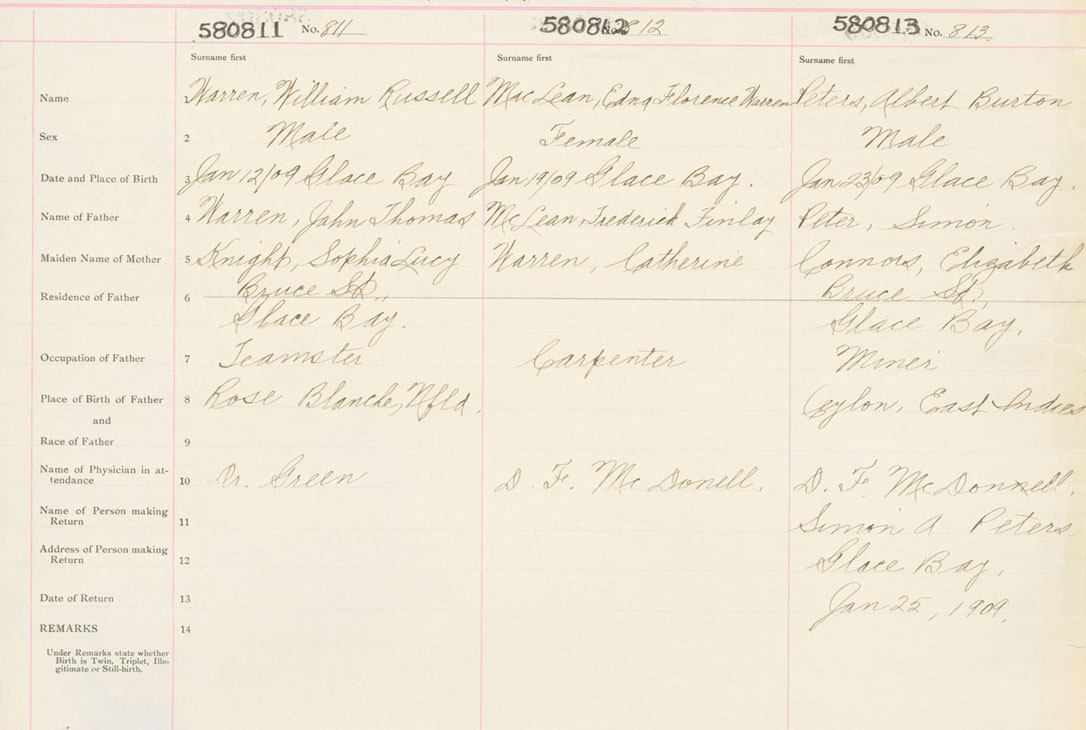 580811 No. 811 580812 No. 812 580813 No. 813
Surname first Surname first Surname first
Name 1 Warren, William Russell MacLean, Edna Florence Warren Peters, Albert Burton
Sex 2 Male Female Male
Date and Place of Birth 3 Jan 12/09 Glace Bay Jan 19/09 Glace Bay. Jan 23/09 Glace Bay.
Name of Father 4 Warren, John Thomas McLean Frederick Finlay Peter, Simon.
Maiden Name of Mother 5 Knight, Sophia Lucy Warren, Catherine Connors, Elizabeth
Residence of Father 6 Bruce St., Bruce St,
Glace Bay. Glace Bay,
Occupation of Father 7 Teamster Carpenter Miner
Place of Birth of Father 8 Rose Blanche, Nfld. Ceylon, East Indies
and
Race of Father 9
Name of Physician in at-
tendance 10 Dr. Green D. F. McDonell. D. F. McDonnell.
Name of Person making
Return 11 Simon A. Peters
Address of Person making
Return 12 Glace Bay,
Date of Return 13 Jan 25, 1909.
REMARKS 14
Under Remarks state whether
Birth is Twin, Triplet, Ille-
gitimate or Still-birth.